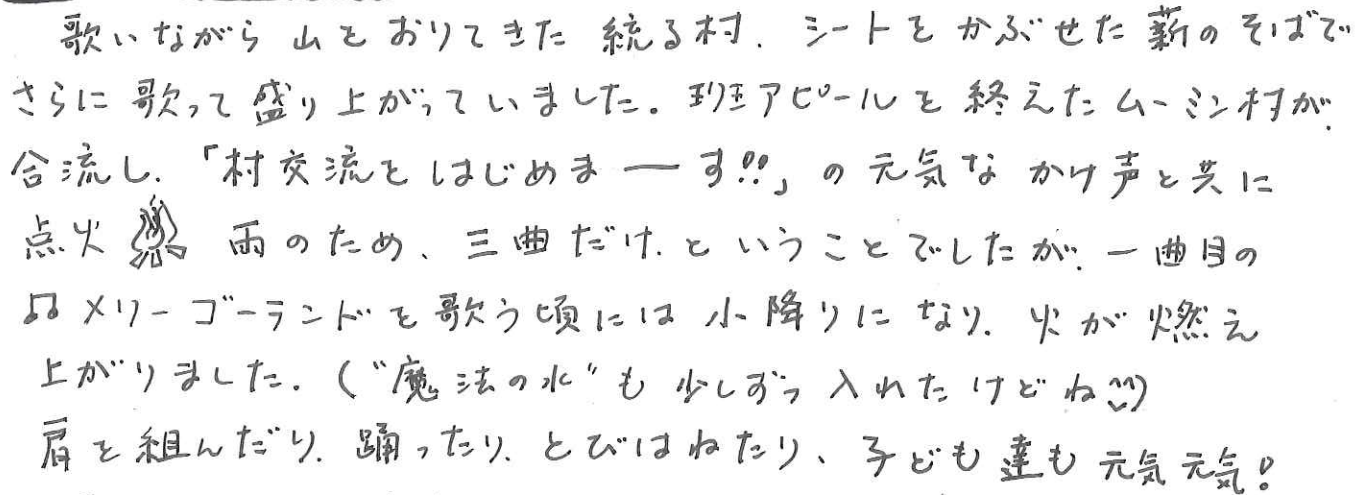 歌いながら山をおりてきた続る村、シートをかぶせた薪のそばで
さらに歌って盛り上がっていました。班アピールを終えたムーミン村が、
合流し、「村交流をはじめまーす!!」の元気なかけ声と共に
点火 雨のため、三曲だけ、ということでしたが、一曲目の
♫メリーゴーランドを歌う頃には小降りになり、火が燃え
上がりました。(“魔法の水”も少しずつ入れたけどね^^)
肩を組んだり、踊ったり、とびはねたり、子ども達も元気元気!